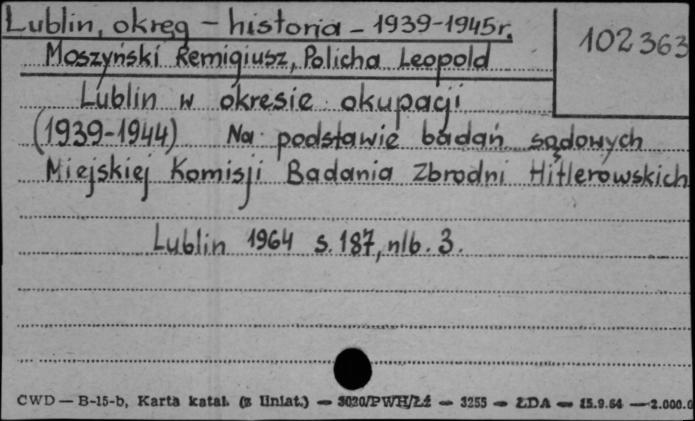 Lublin, okręg - historia - 1939-1945r.
102363
Moszyński Remigiusz, Policha Leopold
Lublin w okresie okupacji
(1939-1944) Na podstawie badań sądowych
Miejskiej Komisji Badania Zbrodni Hitlerowskich
Lublin 1964 s. 187, nlb. 3.
CWD — B-15-b, Karta katal. (z liniat.) — 3020/PWH/Łź — 3255 — ŁDA — 15.9.64 — 2.000.0